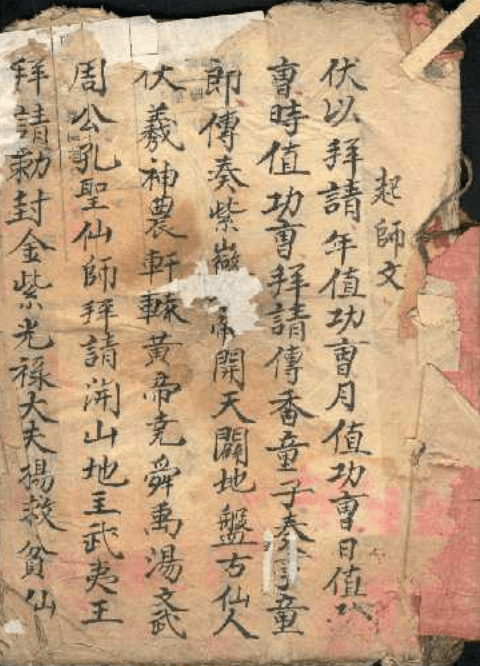 起師文
伏以拜請年值功曺月值功曺日值功
曺時值功曺拜請傳香童子奏事童
郎傳奏紫微帝開天闢地盤古仙人
伏羲神農軒轅黃帝堯舜禹湯文武
周公孔聖仙師拜請開山地主武夷王
拜請勅封金紫光祿大夫楊救貧仙